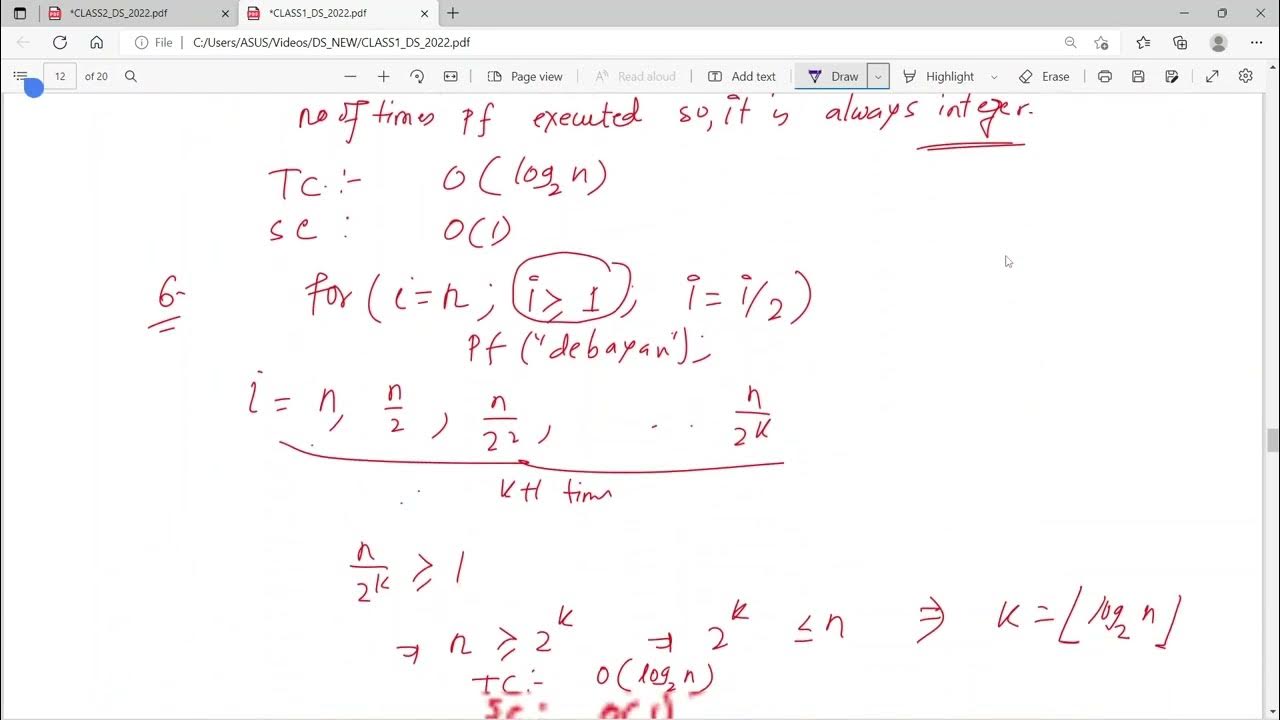 *CLASS2_DS_2022.pdf *CLASS1_DS_2022.pdf
File C:/Users/ASUS/Videos/DS_NEW/CLASS1_DS_2022.pdf
12 of 20 Page view Read aloud Add text Draw Highlight Erase
no of times Pf executed so, it is always integer.
TC :- O(log₂n)
SC : O(1)
6- for( i=n ; i≥1 ; i=i/2)
Pf ("debayan");
i = n, n/2, n/2², . . . n/2ᵏ
k+1 time
n/2ᵏ ≥ 1
⇒ n ≥ 2ᵏ ⇒ 2ᵏ ≤ n ⇒ K = ⌊log₂n⌋
TC :- O(log₂n)
SC : O(1)